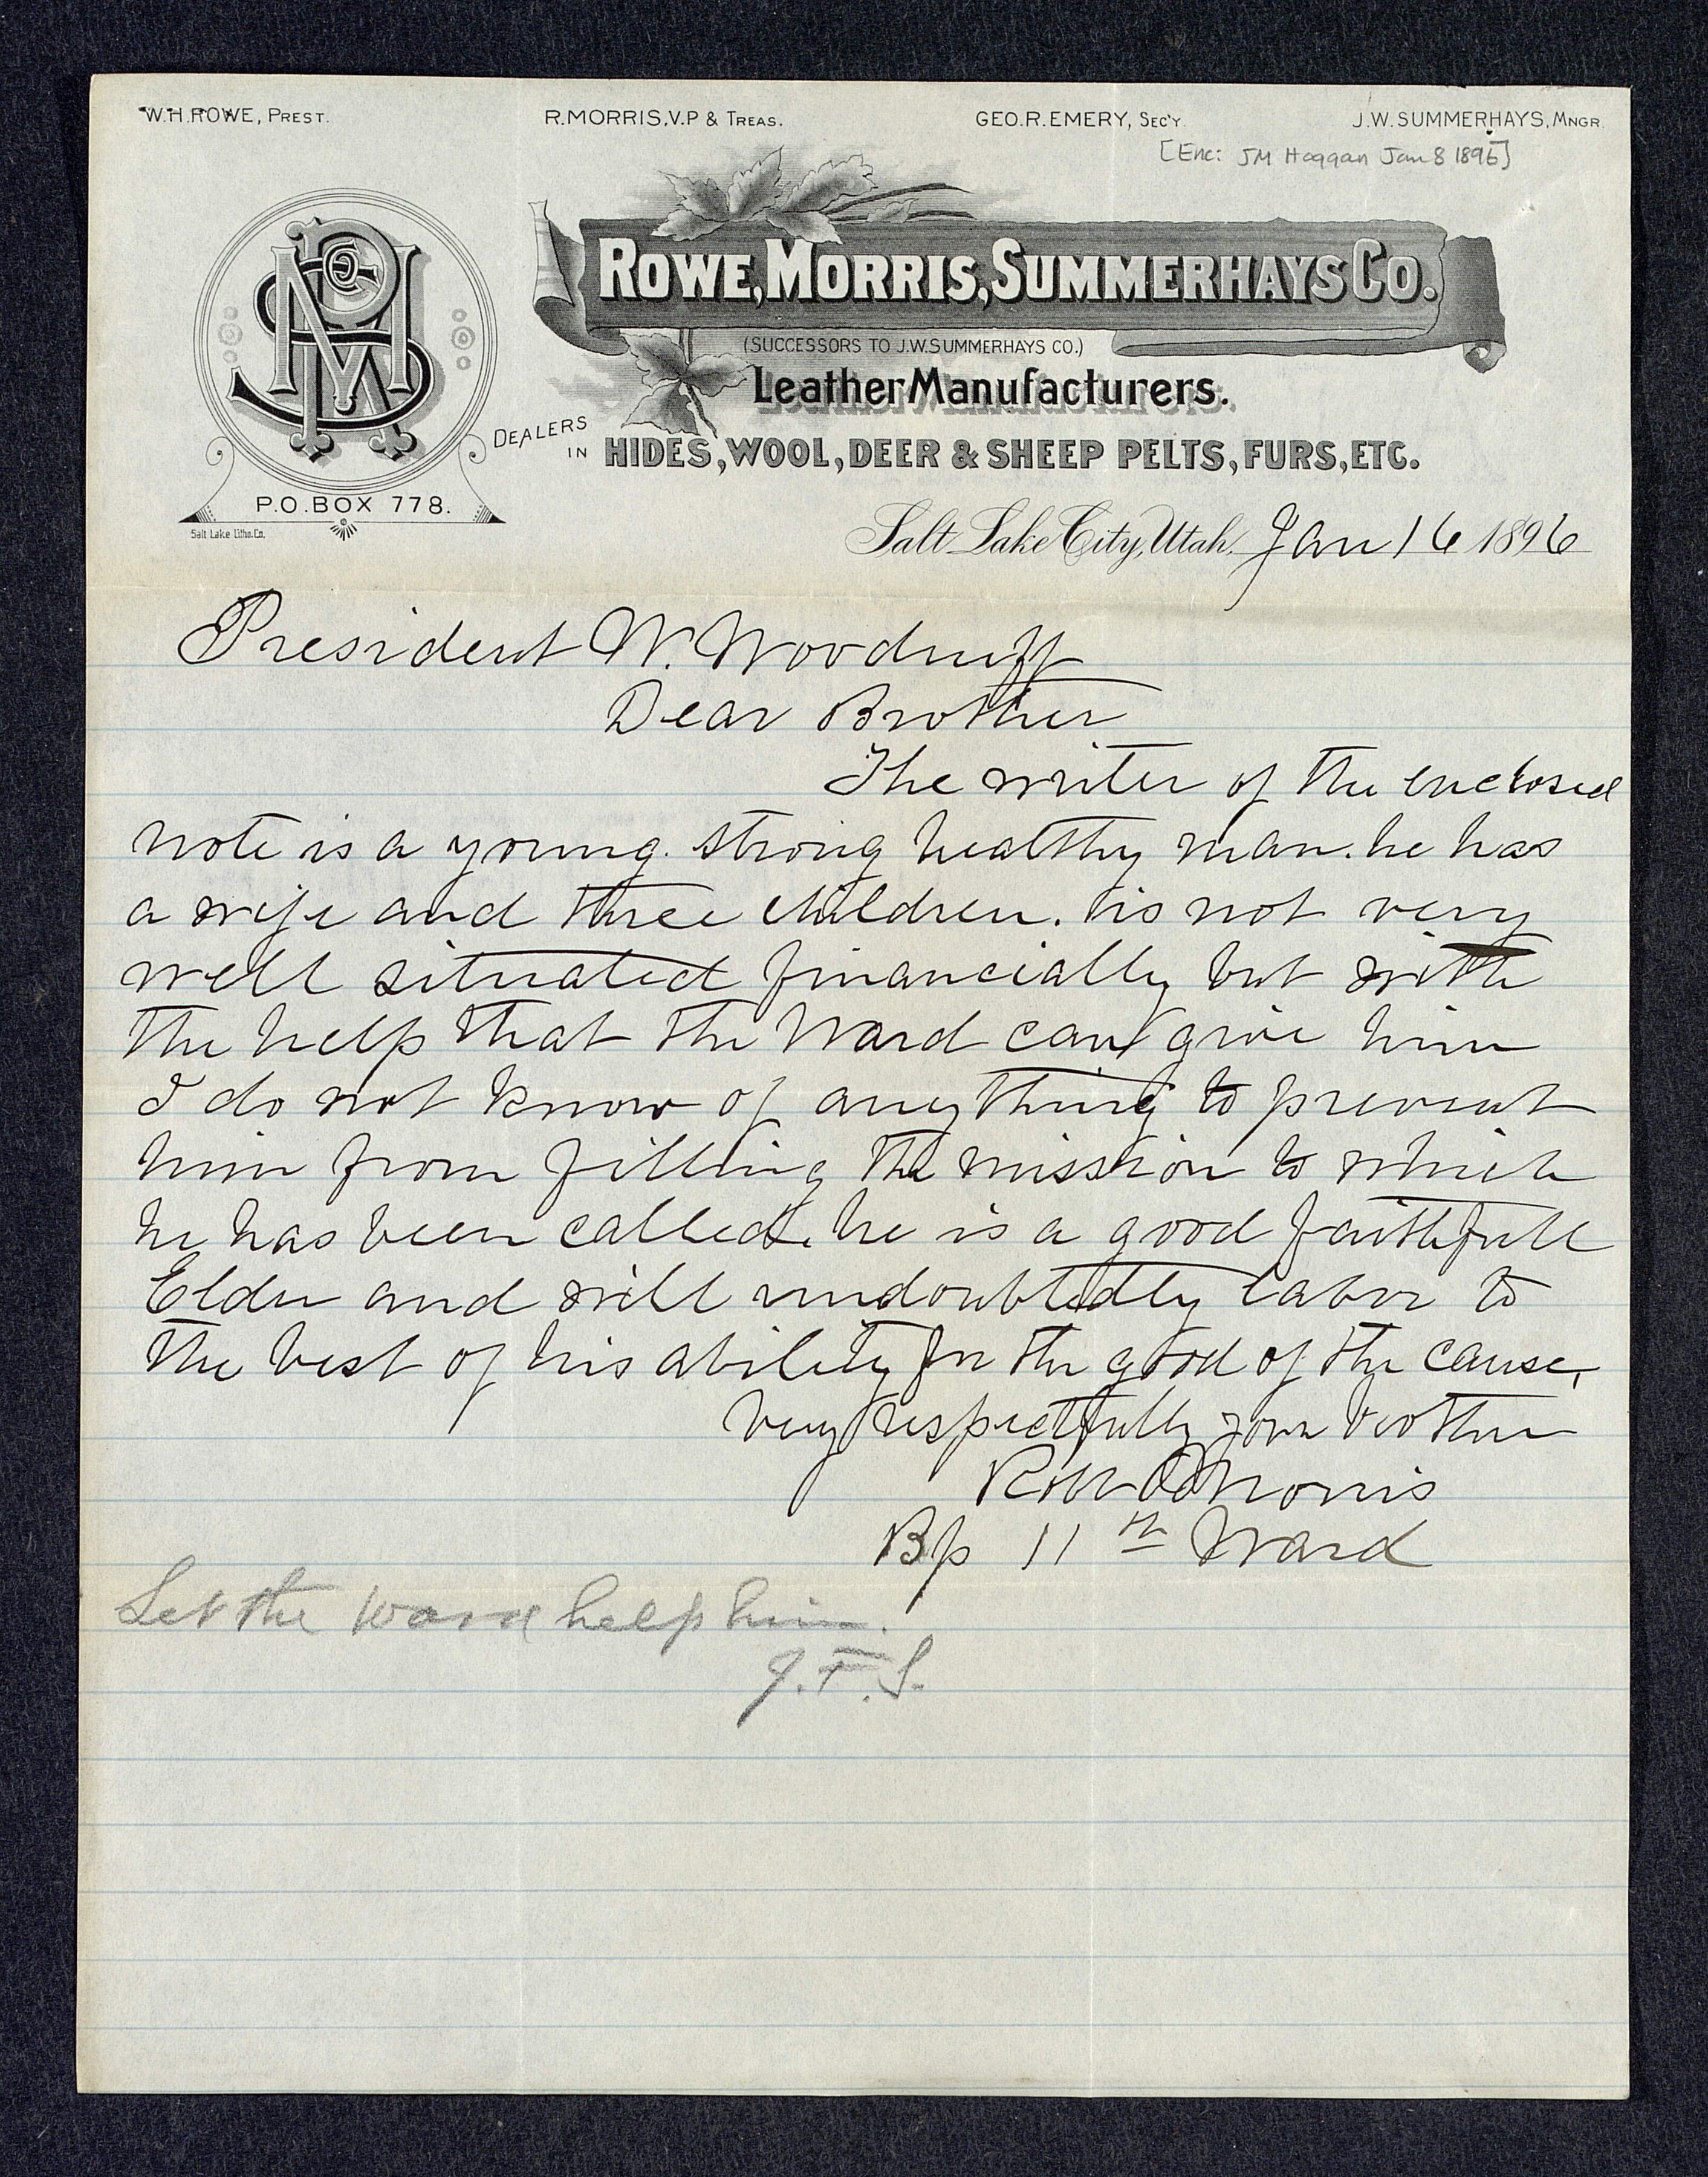 W.H.ROWE, PREST. R.MORRIS,V.P & TREAS. GEO.R.EMERY, SEC'Y J.W.SUMMERHAYS, MNGR.
[Enc: JM Haggan Jan 8 1896]
RMS Co
ROWE, MORRIS, SUMMERHAYS CO.
(SUCCESSORS TO J.W.SUMMERHAYS CO.)
Leather Manufacturers.
DEALERS IN HIDES, WOOL, DEER & SHEEP PELTS, FURS, ETC.
P.O. BOX 778.
Salt Lake Litho. Co.
Salt Lake City, Utah. Jan 16 1896
President W. Woodruff
Dear Brother
The writer of the enclosed
note is a young strong healthy man. he has
a wife and three children. his not very
well situated financially but with
the help that the Ward can give him
I do not know of any thing to prevent
him from filling the mission to which
he has been called. he is a good faithfull
Elder and will undoubtedly labor to
the best of his ability for the good of the cause,
very respectfully your brother
Robt Morris
Bp 11th Ward
Let the Ward help him.
J.F.S.